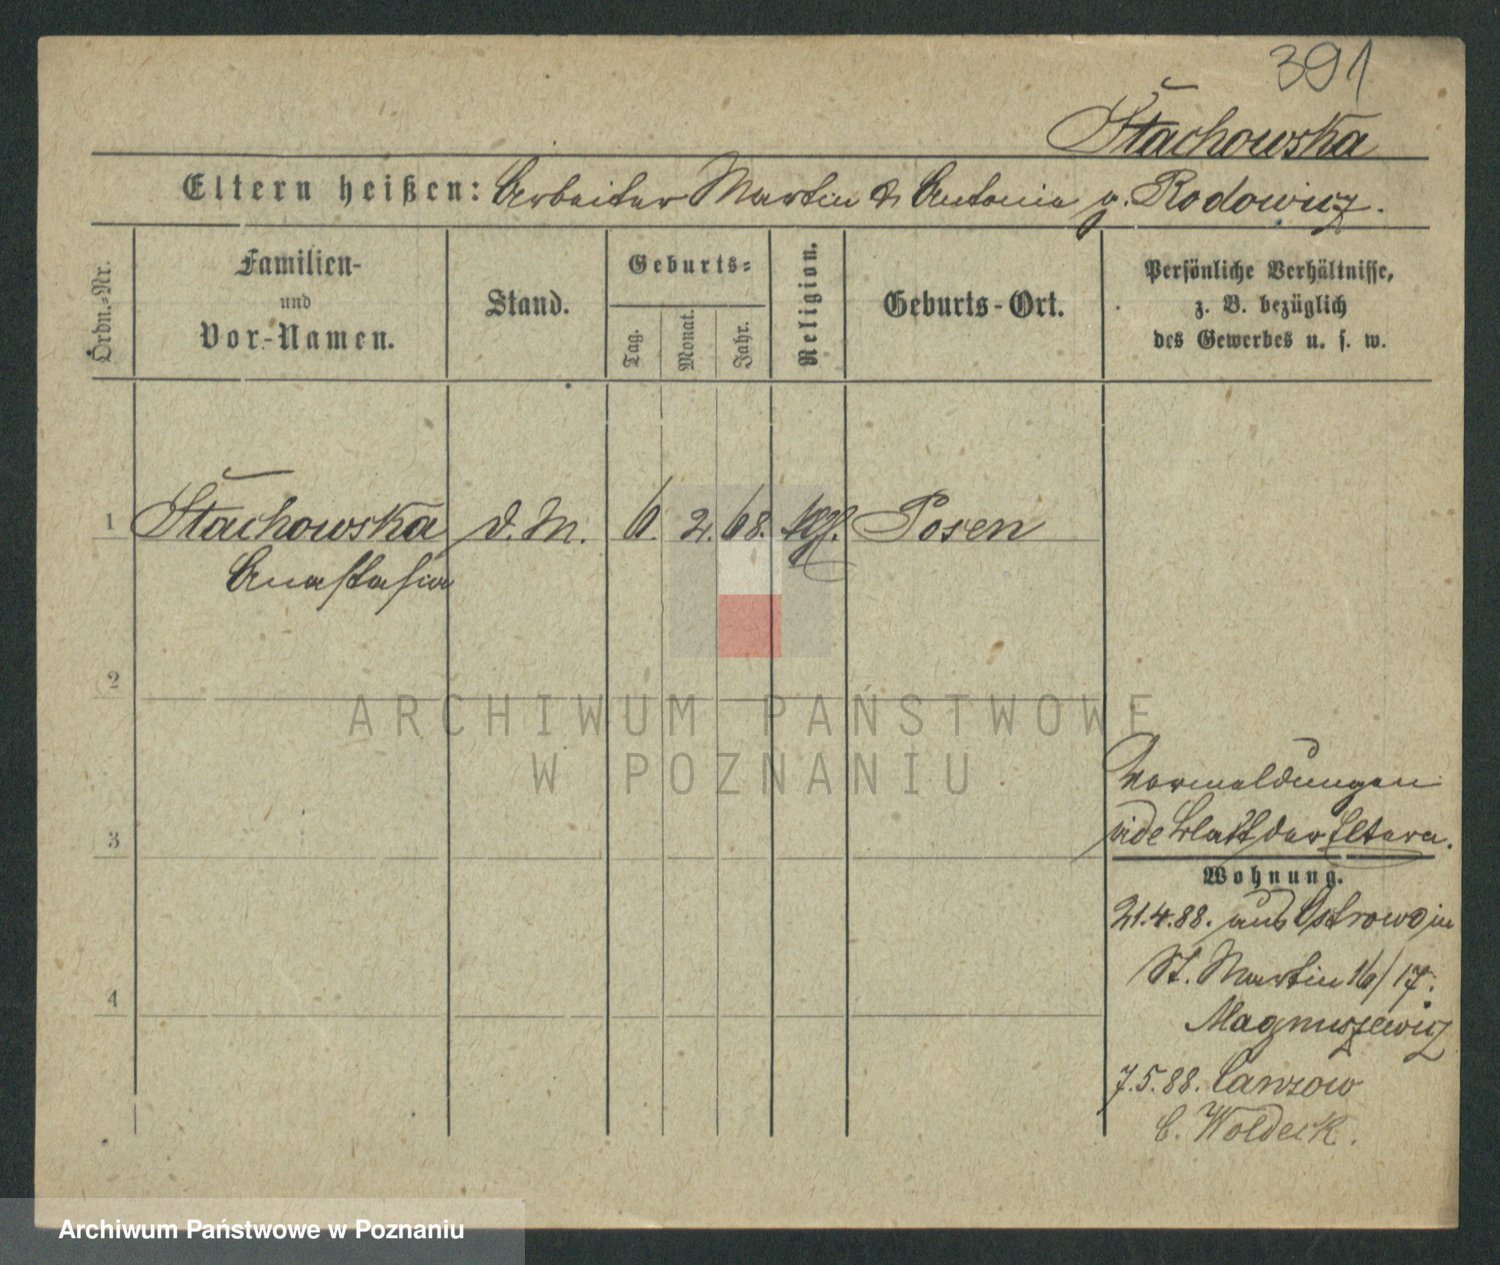 391
Stachowska
Eltern heißen: Arbeiter Martin & Antonie g. Rodowicz.
Ordn.-Nr.
Familien-
und
Vor-Namen.
Stand.
Geburts-
Tag.
Monat.
Jahr.
Religion.
Geburts-Ort.
Persönliche Verhältnisse,
z. B. bezüglich
des Gewerbes u. s. w.
1 Stachowska d. M. 6. 2. 68. Posen
Anastasia
2
ARCHIWUM PAŃSTWOWE
W POZNANIU
Vormeldungen
3
vide Blatt der Eltern.
Wohnung.
21.4.88. aus Ostrowo in
St. Martin 16/17.
4
Magnuszewicz
7.5.88. Canzow
b. Woldeck.
Archiwum Państwowe w Poznaniu